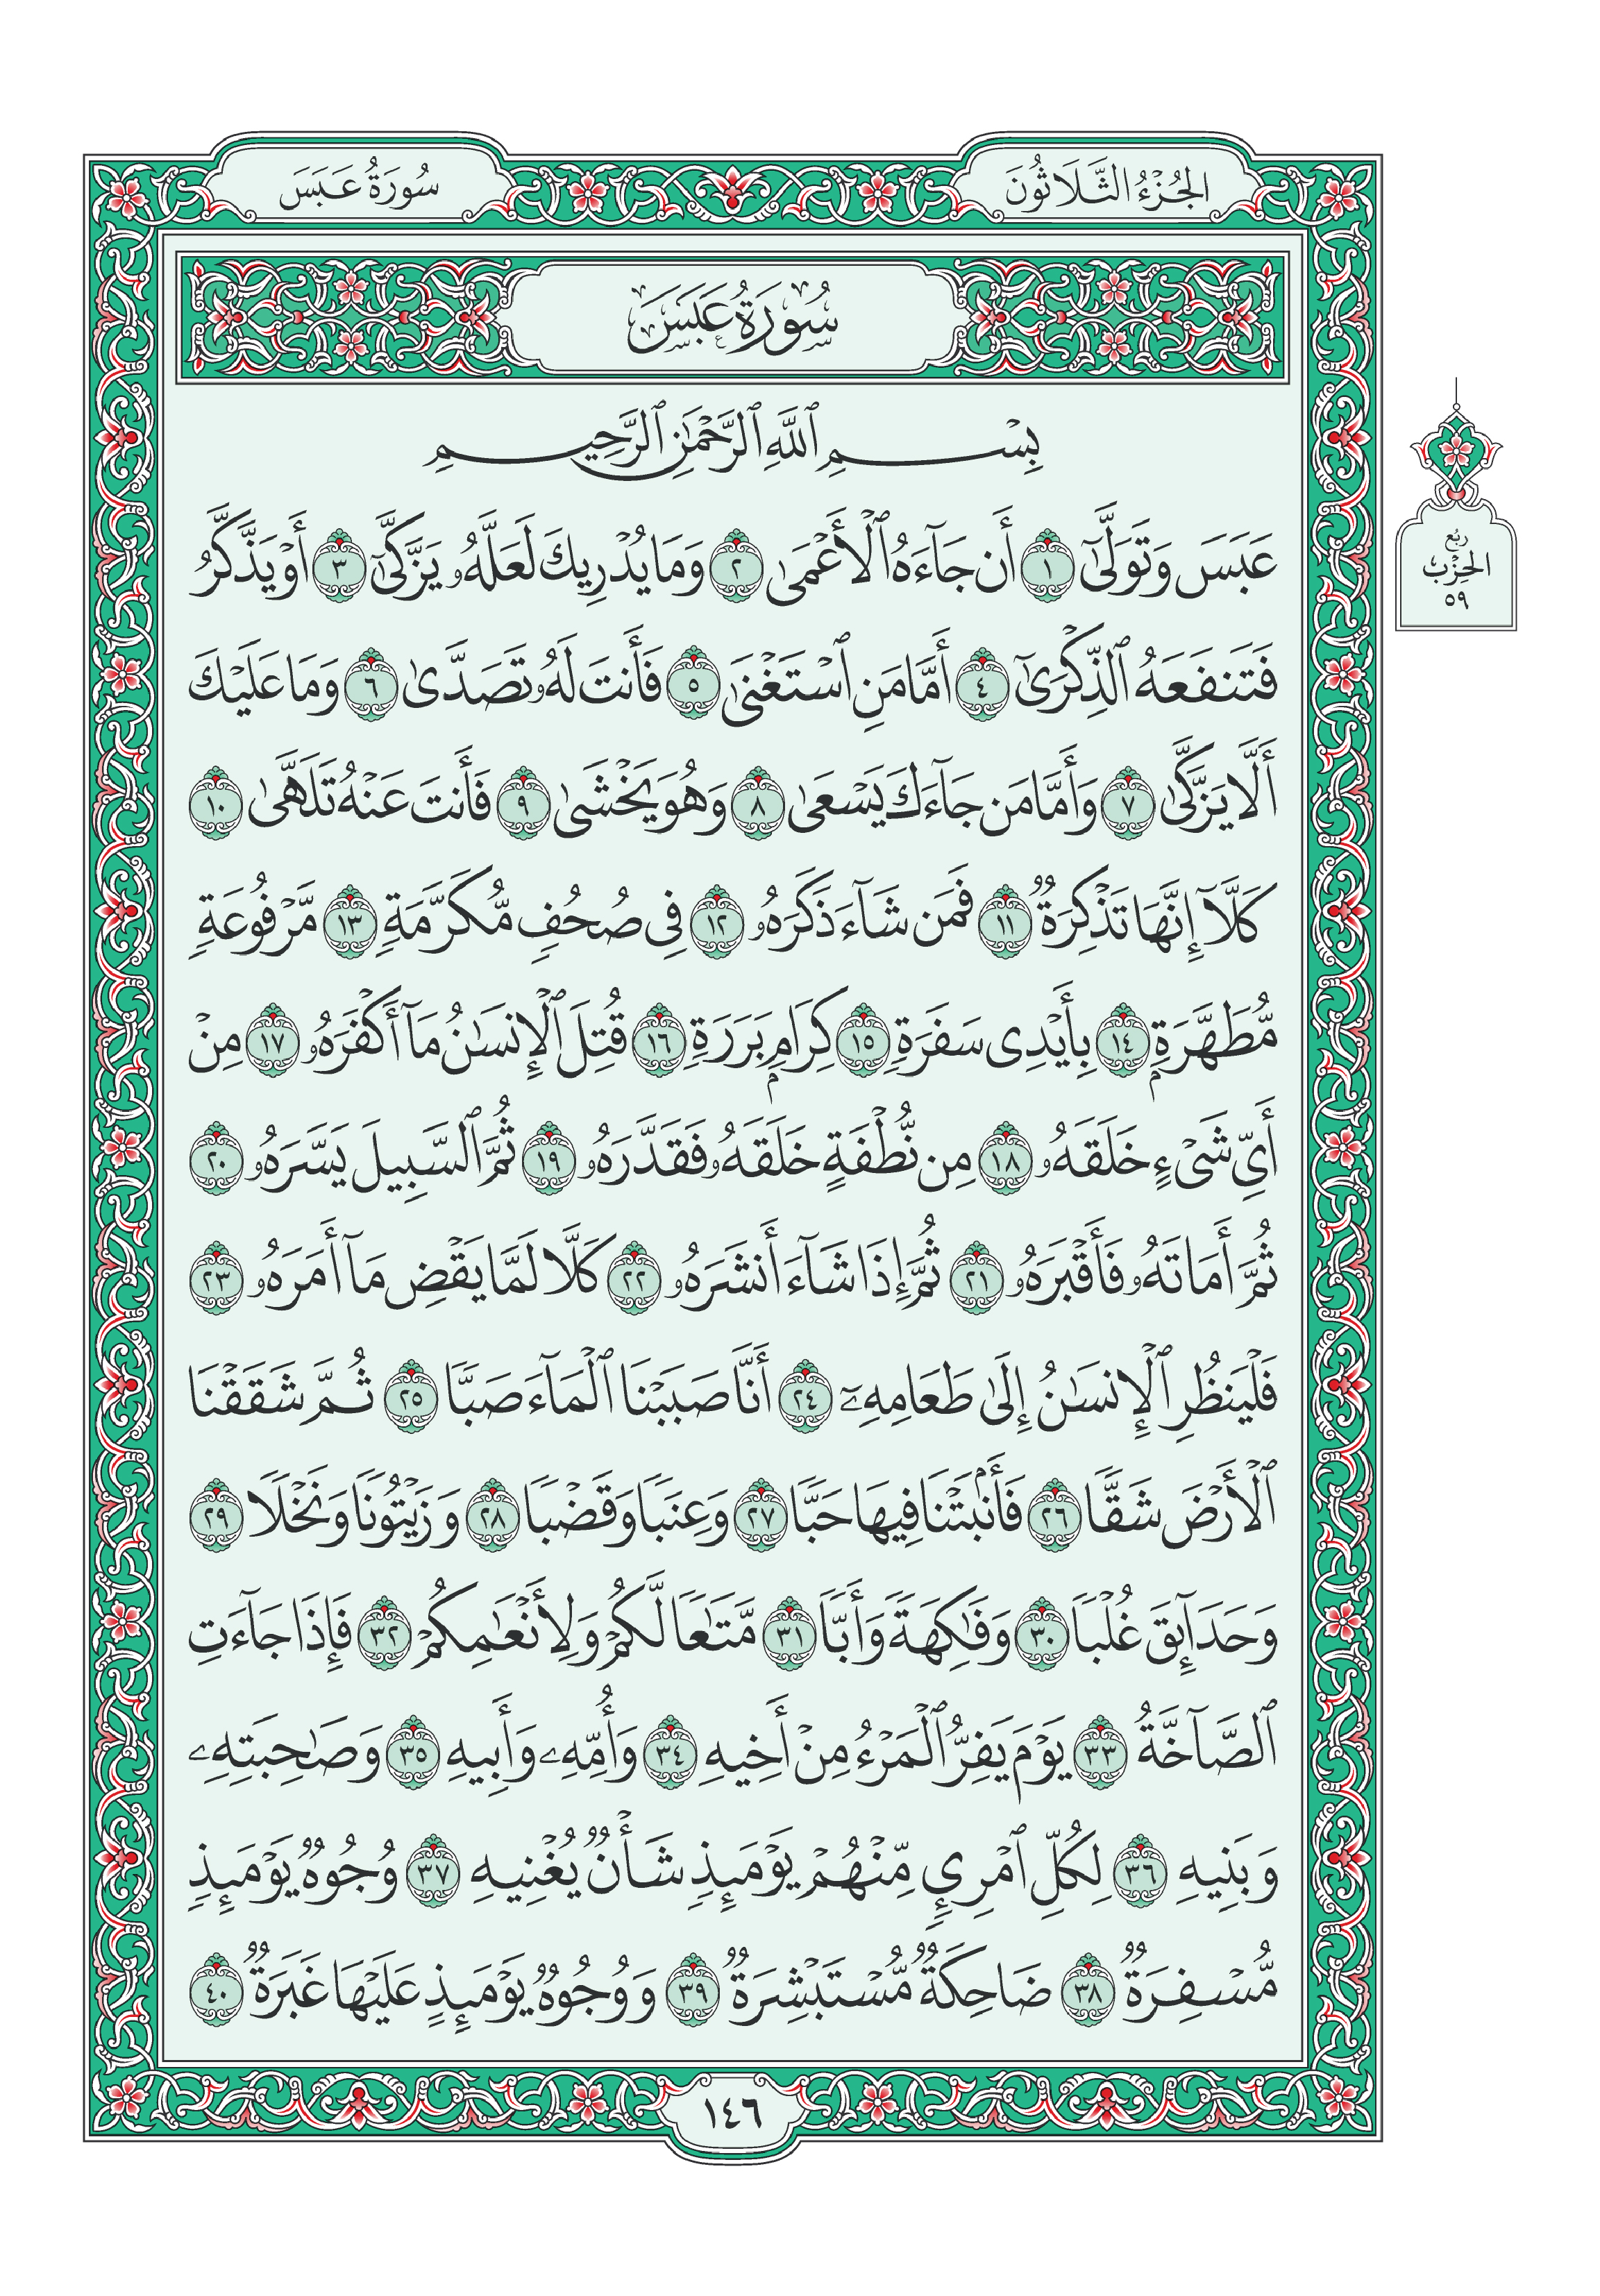 الجُزْءُ الثَّلَاثُونَ
سُورَةُ عَبَسَ
سُورَةُ عَبَسَ
بِسْمِ ٱللَّهِ ٱلرَّحْمَٰنِ ٱلرَّحِيمِ
عَبَسَ وَتَوَلَّىٰٓ ١ أَن جَآءَهُ ٱلْأَعْمَىٰ ٢ وَمَا يُدْرِيكَ لَعَلَّهُۥ يَزَّكَّىٰٓ ٣ أَوْ يَذَّكَّرُ
فَتَنفَعَهُ ٱلذِّكْرَىٰٓ ٤ أَمَّا مَنِ ٱسْتَغْنَىٰ ٥ فَأَنتَ لَهُۥ تَصَدَّىٰ ٦ وَمَا عَلَيْكَ
أَلَّا يَزَّكَّىٰ ٧ وَأَمَّا مَن جَآءَكَ يَسْعَىٰ ٨ وَهُوَ يَخْشَىٰ ٩ فَأَنتَ عَنْهُ تَلَهَّىٰ ١٠
كَلَّآ إِنَّهَا تَذْكِرَةٌ ١١ فَمَن شَآءَ ذَكَرَهُۥ ١٢ فِى صُحُفٍ مُّكَرَّمَةٍ ١٣ مَّرْفُوعَةٍ
مُّطَهَّرَةٍۭ ١٤ بِأَيْدِى سَفَرَةٍ ١٥ كِرَامٍۭ بَرَرَةٍ ١٦ قُتِلَ ٱلْإِنسَٰنُ مَآ أَكْفَرَهُۥ ١٧ مِنْ
أَىِّ شَىْءٍ خَلَقَهُۥ ١٨ مِن نُّطْفَةٍ خَلَقَهُۥ فَقَدَّرَهُۥ ١٩ ثُمَّ ٱلسَّبِيلَ يَسَّرَهُۥ ٢٠
ثُمَّ أَمَاتَهُۥ فَأَقْبَرَهُۥ ٢١ ثُمَّ إِذَا شَآءَ أَنشَرَهُۥ ٢٢ كَلَّا لَمَّا يَقْضِ مَآ أَمَرَهُۥ ٢٣
فَلْيَنظُرِ ٱلْإِنسَٰنُ إِلَىٰ طَعَامِهِۦٓ ٢٤ أَنَّا صَبَبْنَا ٱلْمَآءَ صَبًّا ٢٥ ثُمَّ شَقَقْنَا
ٱلْأَرْضَ شَقًّا ٢٦ فَأَنۢبَتْنَا فِيهَا حَبًّا ٢٧ وَعِنَبًا وَقَضْبًا ٢٨ وَزَيْتُونًا وَنَخْلًا ٢٩
وَحَدَآئِقَ غُلْبًا ٣٠ وَفَٰكِهَةً وَأَبًّا ٣١ مَّتَٰعًا لَّكُمْ وَلِأَنْعَٰمِكُمْ ٣٢ فَإِذَا جَآءَتِ
ٱلصَّآخَّةُ ٣٣ يَوْمَ يَفِرُّ ٱلْمَرْءُ مِنْ أَخِيهِ ٣٤ وَأُمِّهِۦ وَأَبِيهِ ٣٥ وَصَٰحِبَتِهِۦ
وَبَنِيهِ ٣٦ لِكُلِّ ٱمْرِئٍ مِّنْهُمْ يَوْمَئِذٍ شَأْنٌ يُغْنِيهِ ٣٧ وُجُوهٌ يَوْمَئِذٍ
مُّسْفِرَةٌ ٣٨ ضَاحِكَةٌ مُّسْتَبْشِرَةٌ ٣٩ وَوُجُوهٌ يَوْمَئِذٍ عَلَيْهَا غَبَرَةٌ ٤٠
رُبْعُ
الحِزْبِ
٥٩
١٤٦